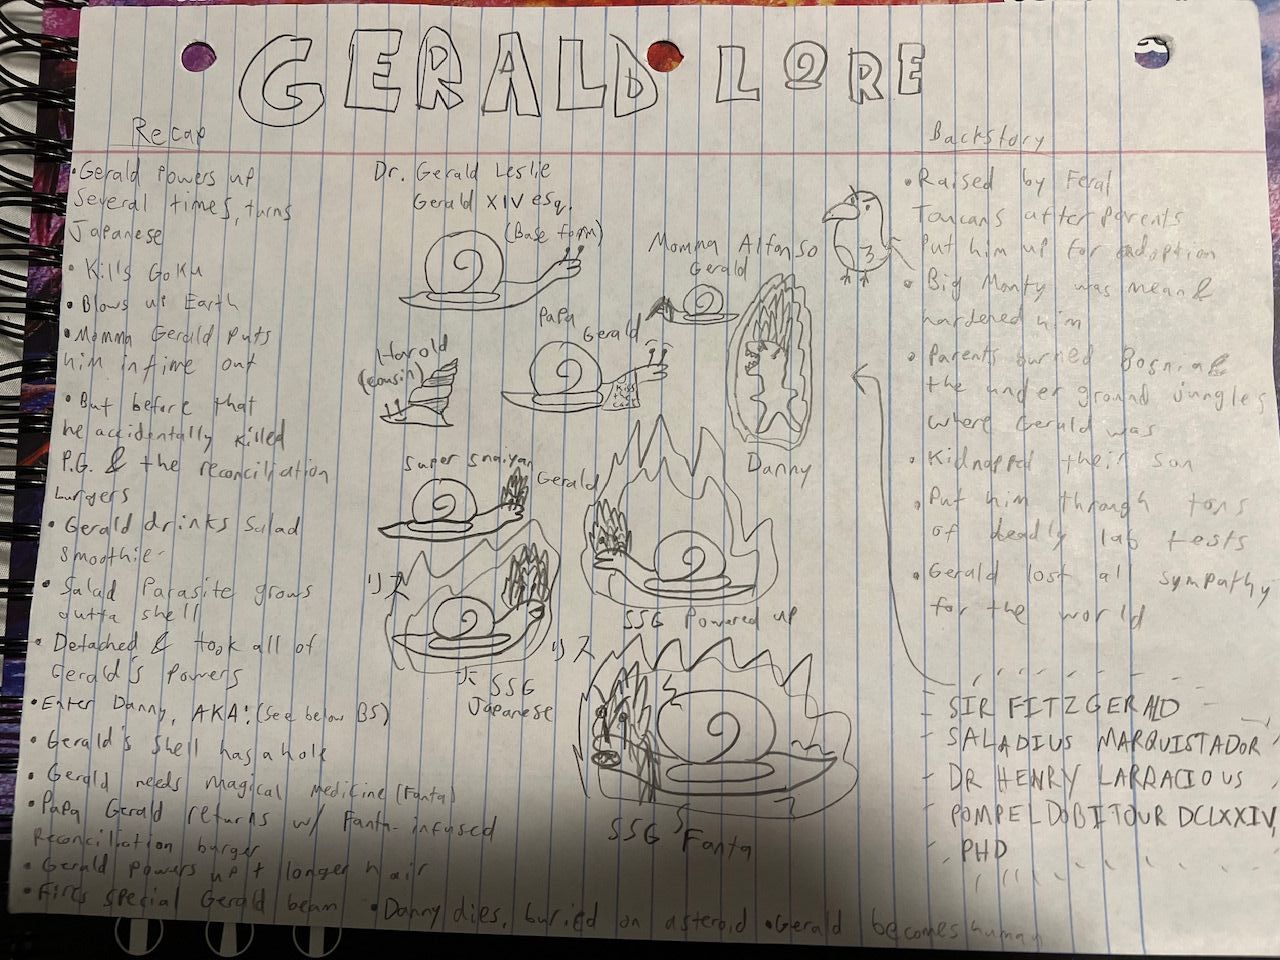 GERALD LORE
Recap
• Gerald Powers up
several times, turns
Japanese
• Kills Goku
• Blows up Earth
• Momma Gerald puts
him in time out
• But before that
he accidentally killed
P.G. & the reconciliation
burgers
• Gerald drinks Salad
smoothie
• Salad Parasite grows
outta shell
• Detached & took all of
Gerald's Powers
• Enter Danny, AKA: (See below BS)
• Gerald's Shell has a hole
• Gerald needs magical medicine (Fanta)
• Papa Gerald returns w/ Fanta-infused
reconciliation burger
• Gerald powers up + longer hair
• Fires special Gerald beam • Danny dies, buried on asteroid • Gerald becomes human
Dr. Gerald Leslie
Gerald XIV esq.
(Base form)
Momma Alfonso
Gerald
Papa
Gerald
Kiss
the
Harold
(cousin)
Danny
Super Snaiyan
Gerald
SSG Powered up
リス
SSG
Japanese
リス
SSG
Fanta
Backstory
• Raised by Feral
Toucans after parents
Put him up for adoption
• Big Monty was mean &
hardened him
• Parents burned Bosnia &
the underground jungles
where Gerald was
• Kidnapped their son
• Put him through tons
of deadly lab tests
• Gerald lost all sympathy
for the world
SIR FITZGERALD
SALADIUS MARQUISTADOR
DR HENRY LARRACIOUS
POMPELDOBITOUR DCLXXIV,
PHD